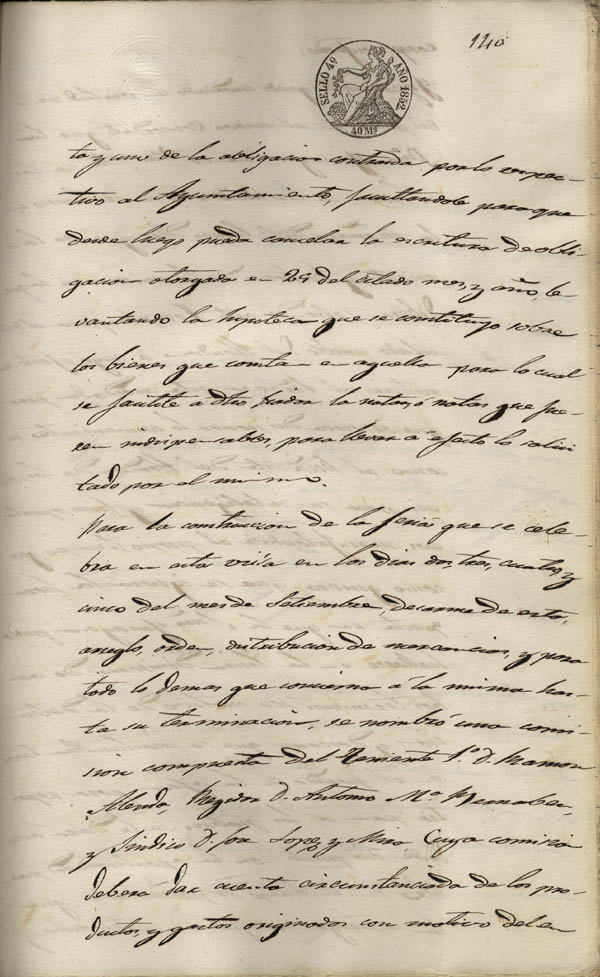 140
SELLO 4º AÑO 1852.
40 Mº
ta y uno de la obligacion contraida por lo respec-
tivo al Ayuntamiento, facultandole para que
desde luego pueda cancelar la escritura de obli-
gacion otorgada en 25 del citado mes, y año, le
vantando la hipoteca que se constituyo sobre
los bienes que constan en aquella para lo cual
se facilite a dho fiador la nota, ó notas que fue-
ren indispensables, para llevar á efecto lo solici
tado por el mismo.
Para la construccion de la feria que se cele-
bra en esta villa en los dias dos, tres, cuatro, y
cinco del mes de Setiembre, desarme de esta,
arreglo, orden, distribucion de mercancias, y para
todo lo demas que concierna á la misma has-
ta su terminacion, se nombró una comi-
sion compuesta del Teniente 1º D. Ramon
Alenda, Regidor D. Antonio Mª Bernabeu,
y Sindico D. José Lopez y Mira, Cuya comision
deberá dar cuenta circunstanciada de los pro-
ductos, y gastos originados con motivo del en